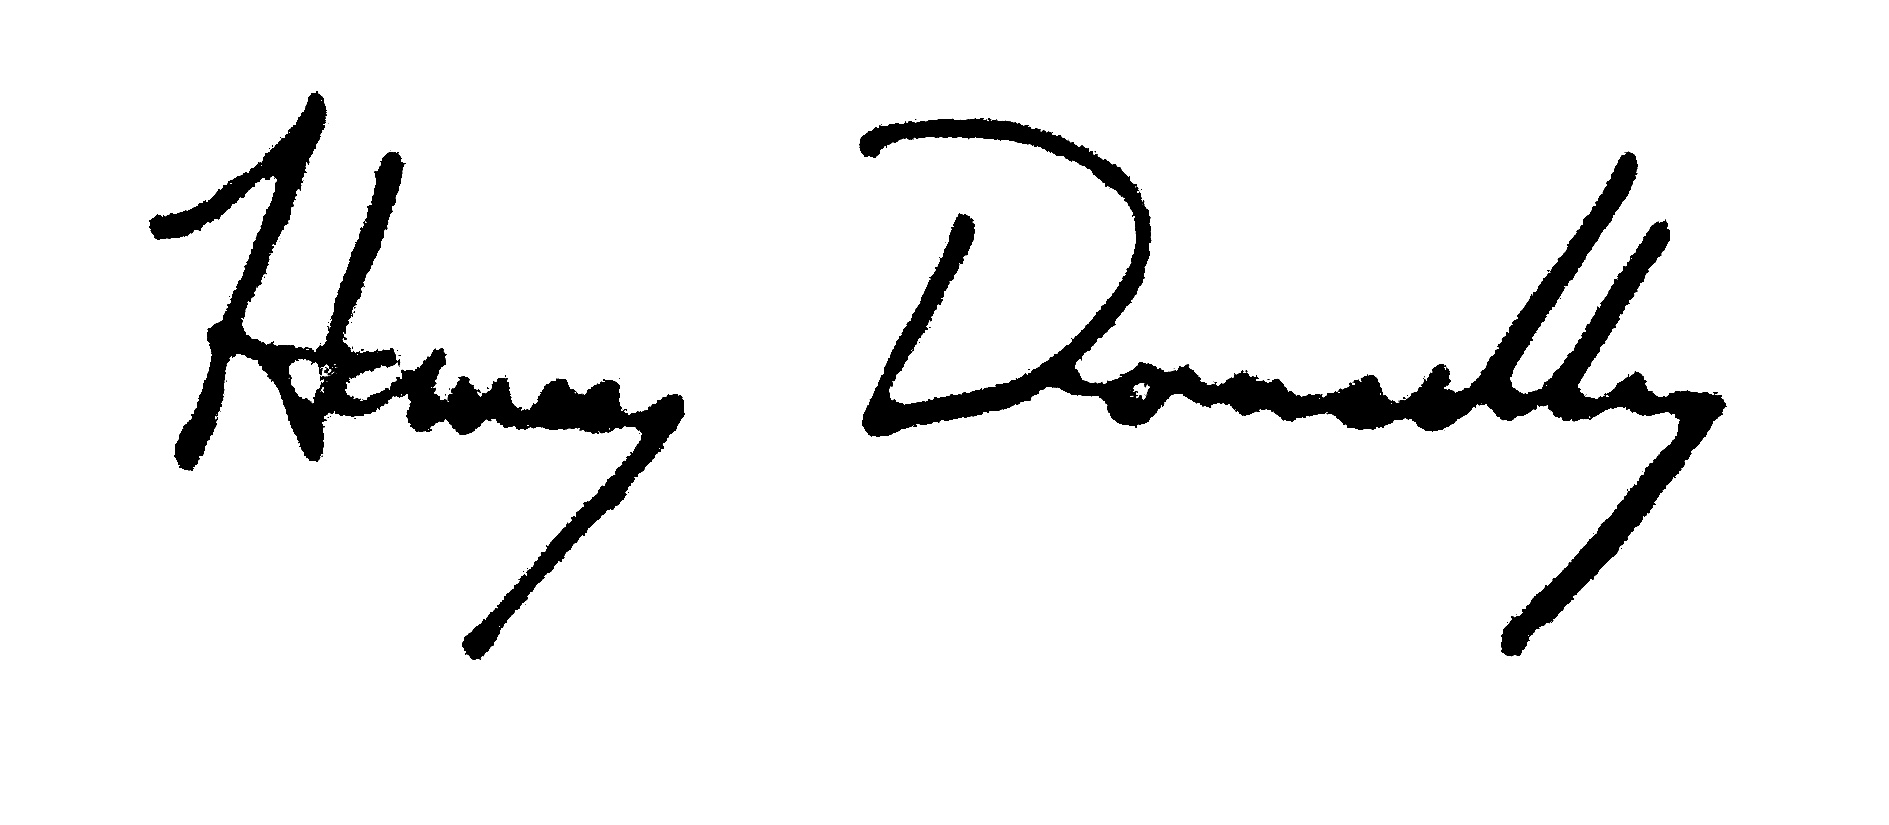 Harvey Donnelly